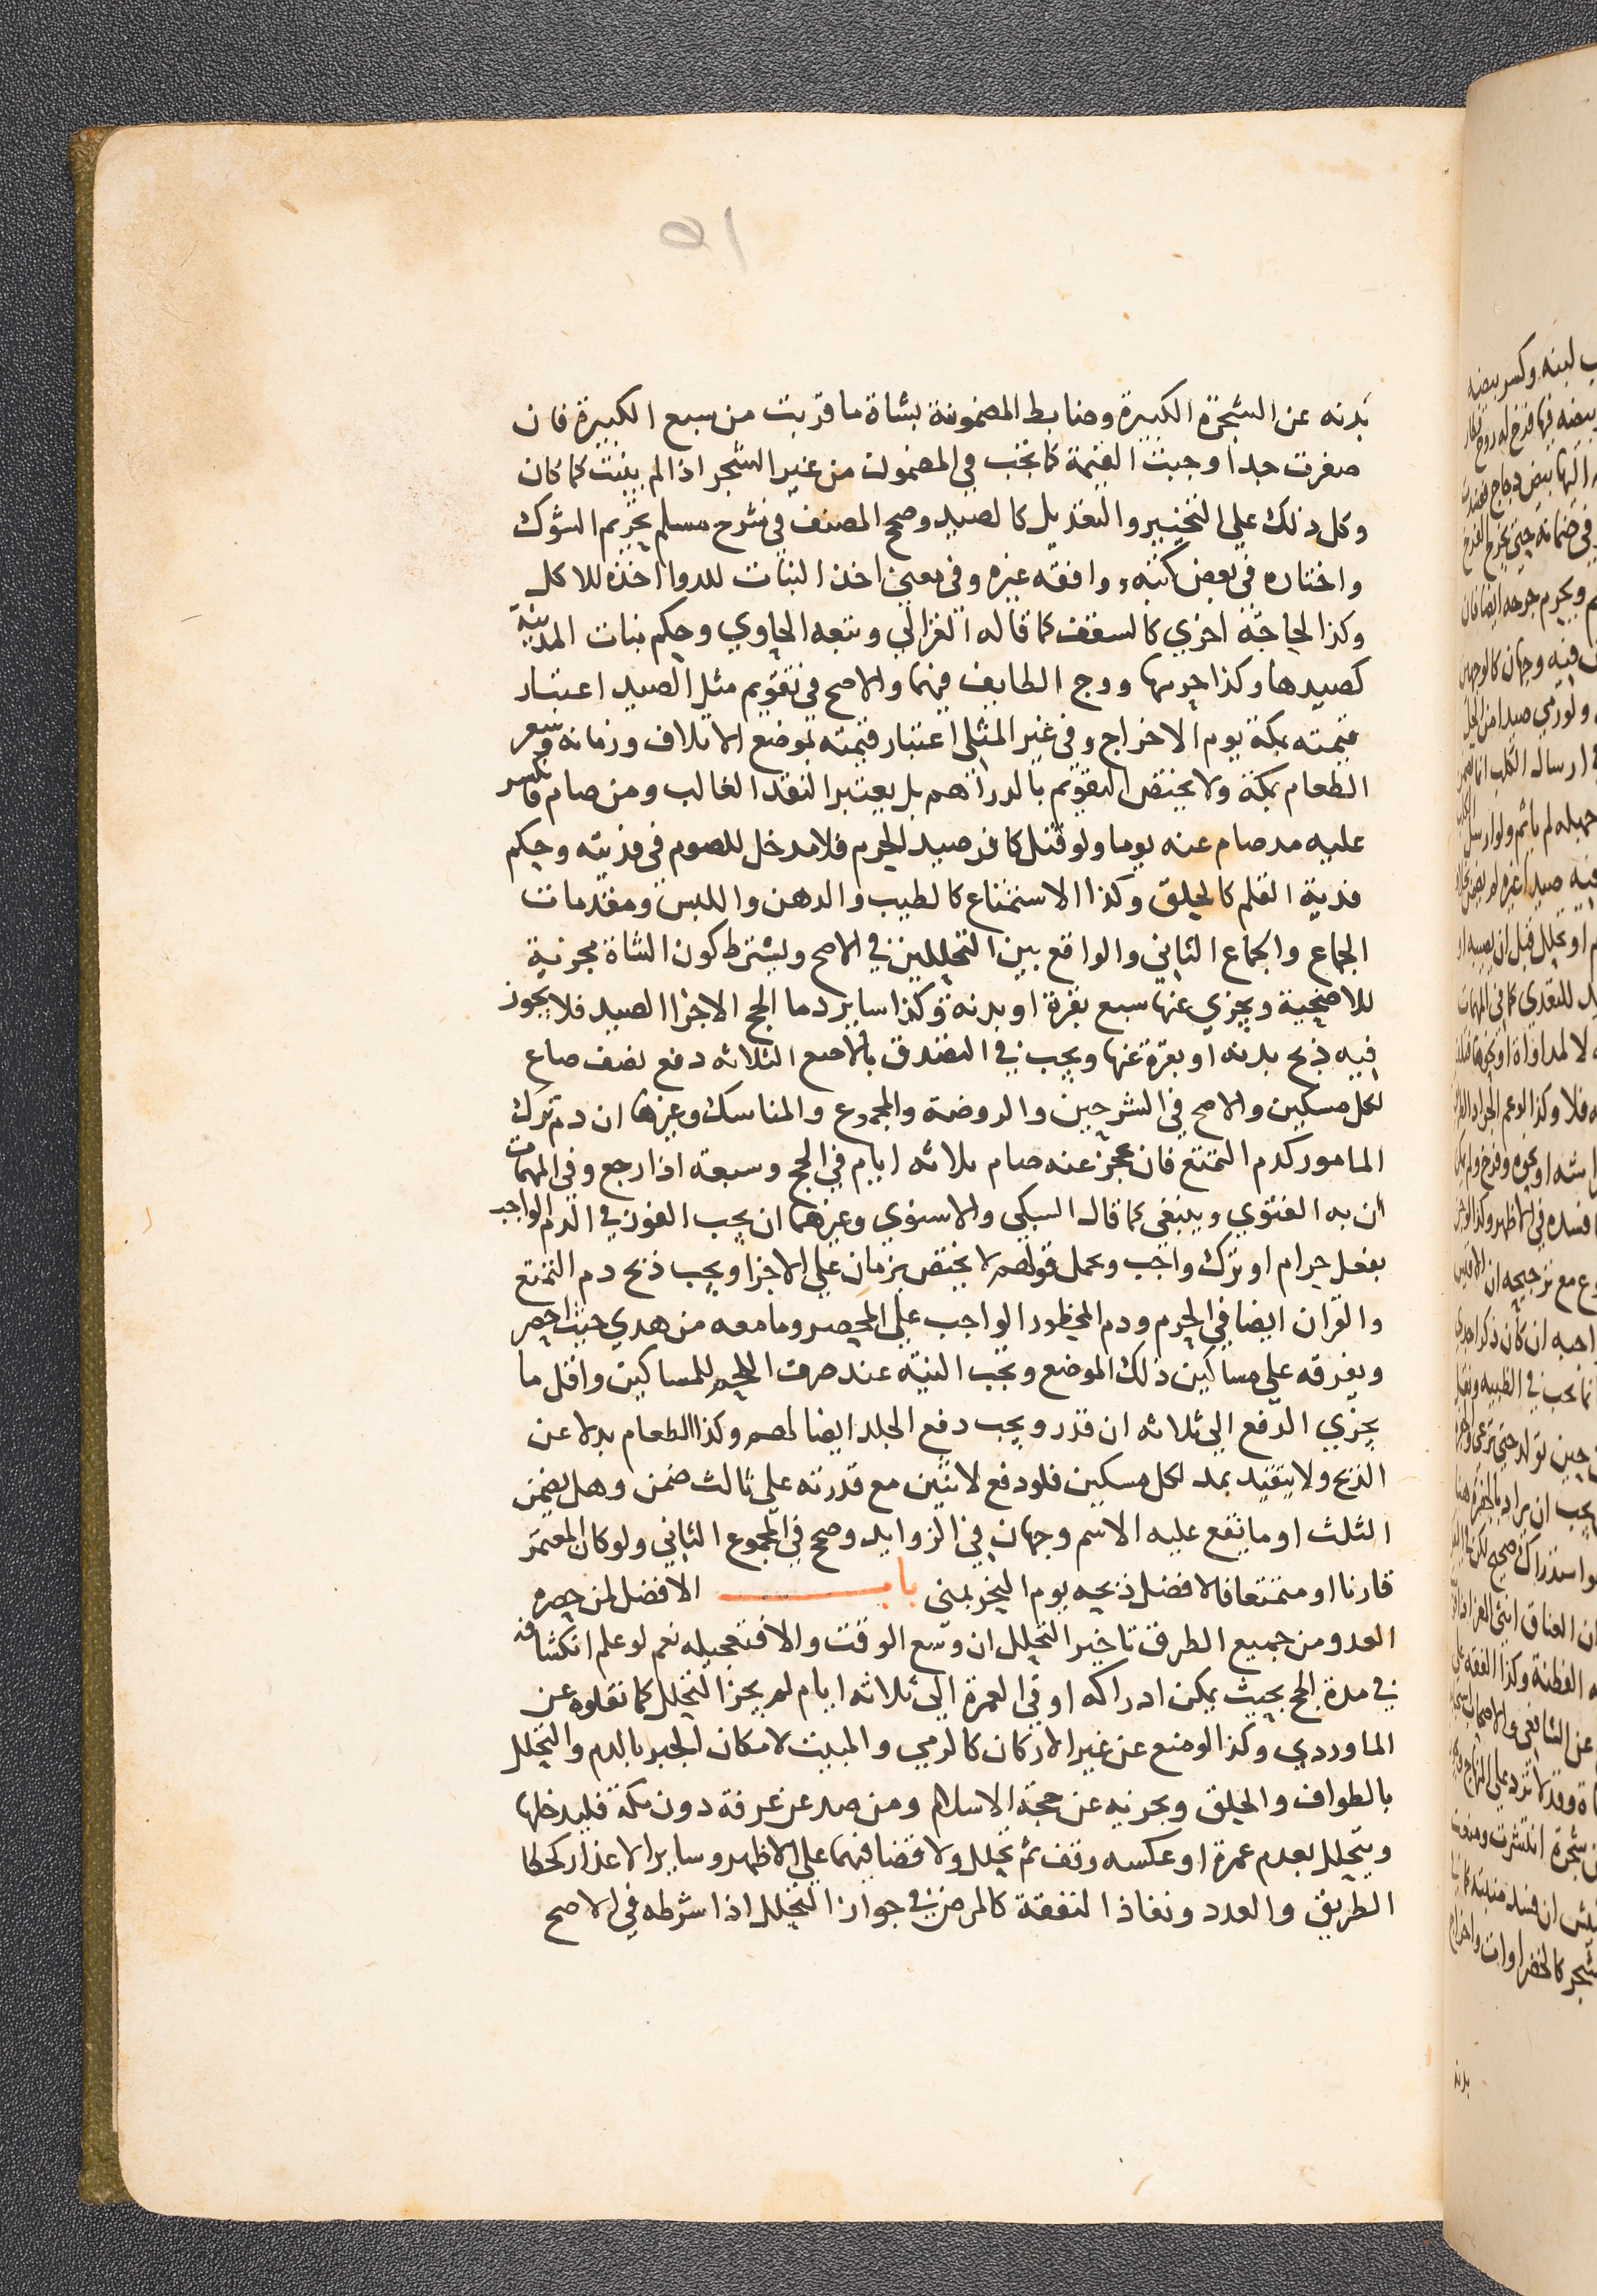 ٥١
بدنه عن الشجرة الكبيرة وضابط المضمونة بشاة ما قربت من سبع الكبيرة فان
صغرت جدا وجبت القيمة كما تجب في المضمون من غير الشجر اذا لم ينبت كما كان
وكل ذلك علي التخيير والتعديل كالصيد وصحح المصنف في شرح مسلم تحريم الشوك
واختاره في بعض كتبه ووافقه غيره وفي معني اخذ النبات للدوا اخذه للاكل
وكذا لحاجة اخري كالسقف كما قاله الغزالي وتبعه الحاوي وحكم نبات المدينة
كصيدها وكذا حرمها ووج الطايف فيهما والاصح في تقويم مثل الصيد اعتبار
قيمته بمكة يوم الاخراج وفي غير المثلي اعتبار قيمته بموضع الاتلاف وزمانه وبسعر
الطعام بمكة ولا يختص التقويم بالدراهم بل يعتبر النقد الغالب ومن صام فانكسر
عليه مد صام عنه يوما ولو قتل كافر صيد الحرم فلا مدخل للصوم في فديته وحكم
فدية القلم كالحلق وكذا الاستمتاع كالطيب والدهن واللبس ومقدمات
الجماع والجماع الثاني والواقع بين التحليلين في الاصح ويشترط كون الشاة مجزية
للاضحية ويجزي عنها سبع بقرة او بدنه وكذا ساير دما الحج الا جزا الصيد فلا يجوز
فيه ذبح بدنه او بقرة عنها ويجب في التصدق بالاصع الثلاثه دفع نصف صاع
لكل مسكين والاصح في الشرحين والروضة والمجموع والمناسك وغيرها ان دم ترك
المامور كدم التمتع فان عجز عنه صام ثلاثه ايام في الحج وسبعة اذا رجع وفي المهمات
ان به الفتوي وينبغي كما قال السبكي والاسنوي وغيرهما ان يجب الفور في الدم الواجب
بفعل حرام او ترك واجب ويحمل قولهم لا يختص بزمان علي الاجزا ويجب ذبح دم التمتع
والقران ايضا في الحرم ودم المحظور الواجب علي المحصر وما معه من هدي حيث احصر
ويفرقه علي مساكين ذلك الموضع وتجب النية عند صرف اللحم للمساكين واقل ما
يجزي الدفع الي ثلاثه ان قدر ويجب دفع الجلد ايضا لهم وكذا الطعام بدلا عن
الذبح ولا يتقيد بمد لكل مسكين فلو دفع لاثنين مع قدرته علي ثالث ضمن وهل يضمن
الثلث او ما يقع عليه الاسم وجهان في الزوايد وصحح في المجموع الثاني ولو كان المعتمر
قارنا او متمتعا فالافضل ذبحه يوم النحر بمني باب الافضل لمن حصره
العدو من جميع الطرق تاخير التحلل ان وسع الوقت والا فتعجيله نعم لو علم انكشافه
في مدة الحج بحيث يمكن ادراكه او في العمرة الي ثلاثه ايام لم يجز التحلل كما نقلوه عن
الماوردي وكذا لو منع عن غير الاركان كالرمي والمبيت لامكان الجبر بالدم والتحلل
بالطواف والحلق ويجزيه عن حجة الاسلام ومن صد عن عرفة دون مكة فليدخلها
ويتحلل بعدم عمرة او عكسه وقف ثم تحلل ولا قضا فيهما علي الاظهر وساير الاعذار كخطا
الطريق والعدد ونفاذ النفقة كالمرض في جواز التحلل اذا شرطه في الاصح